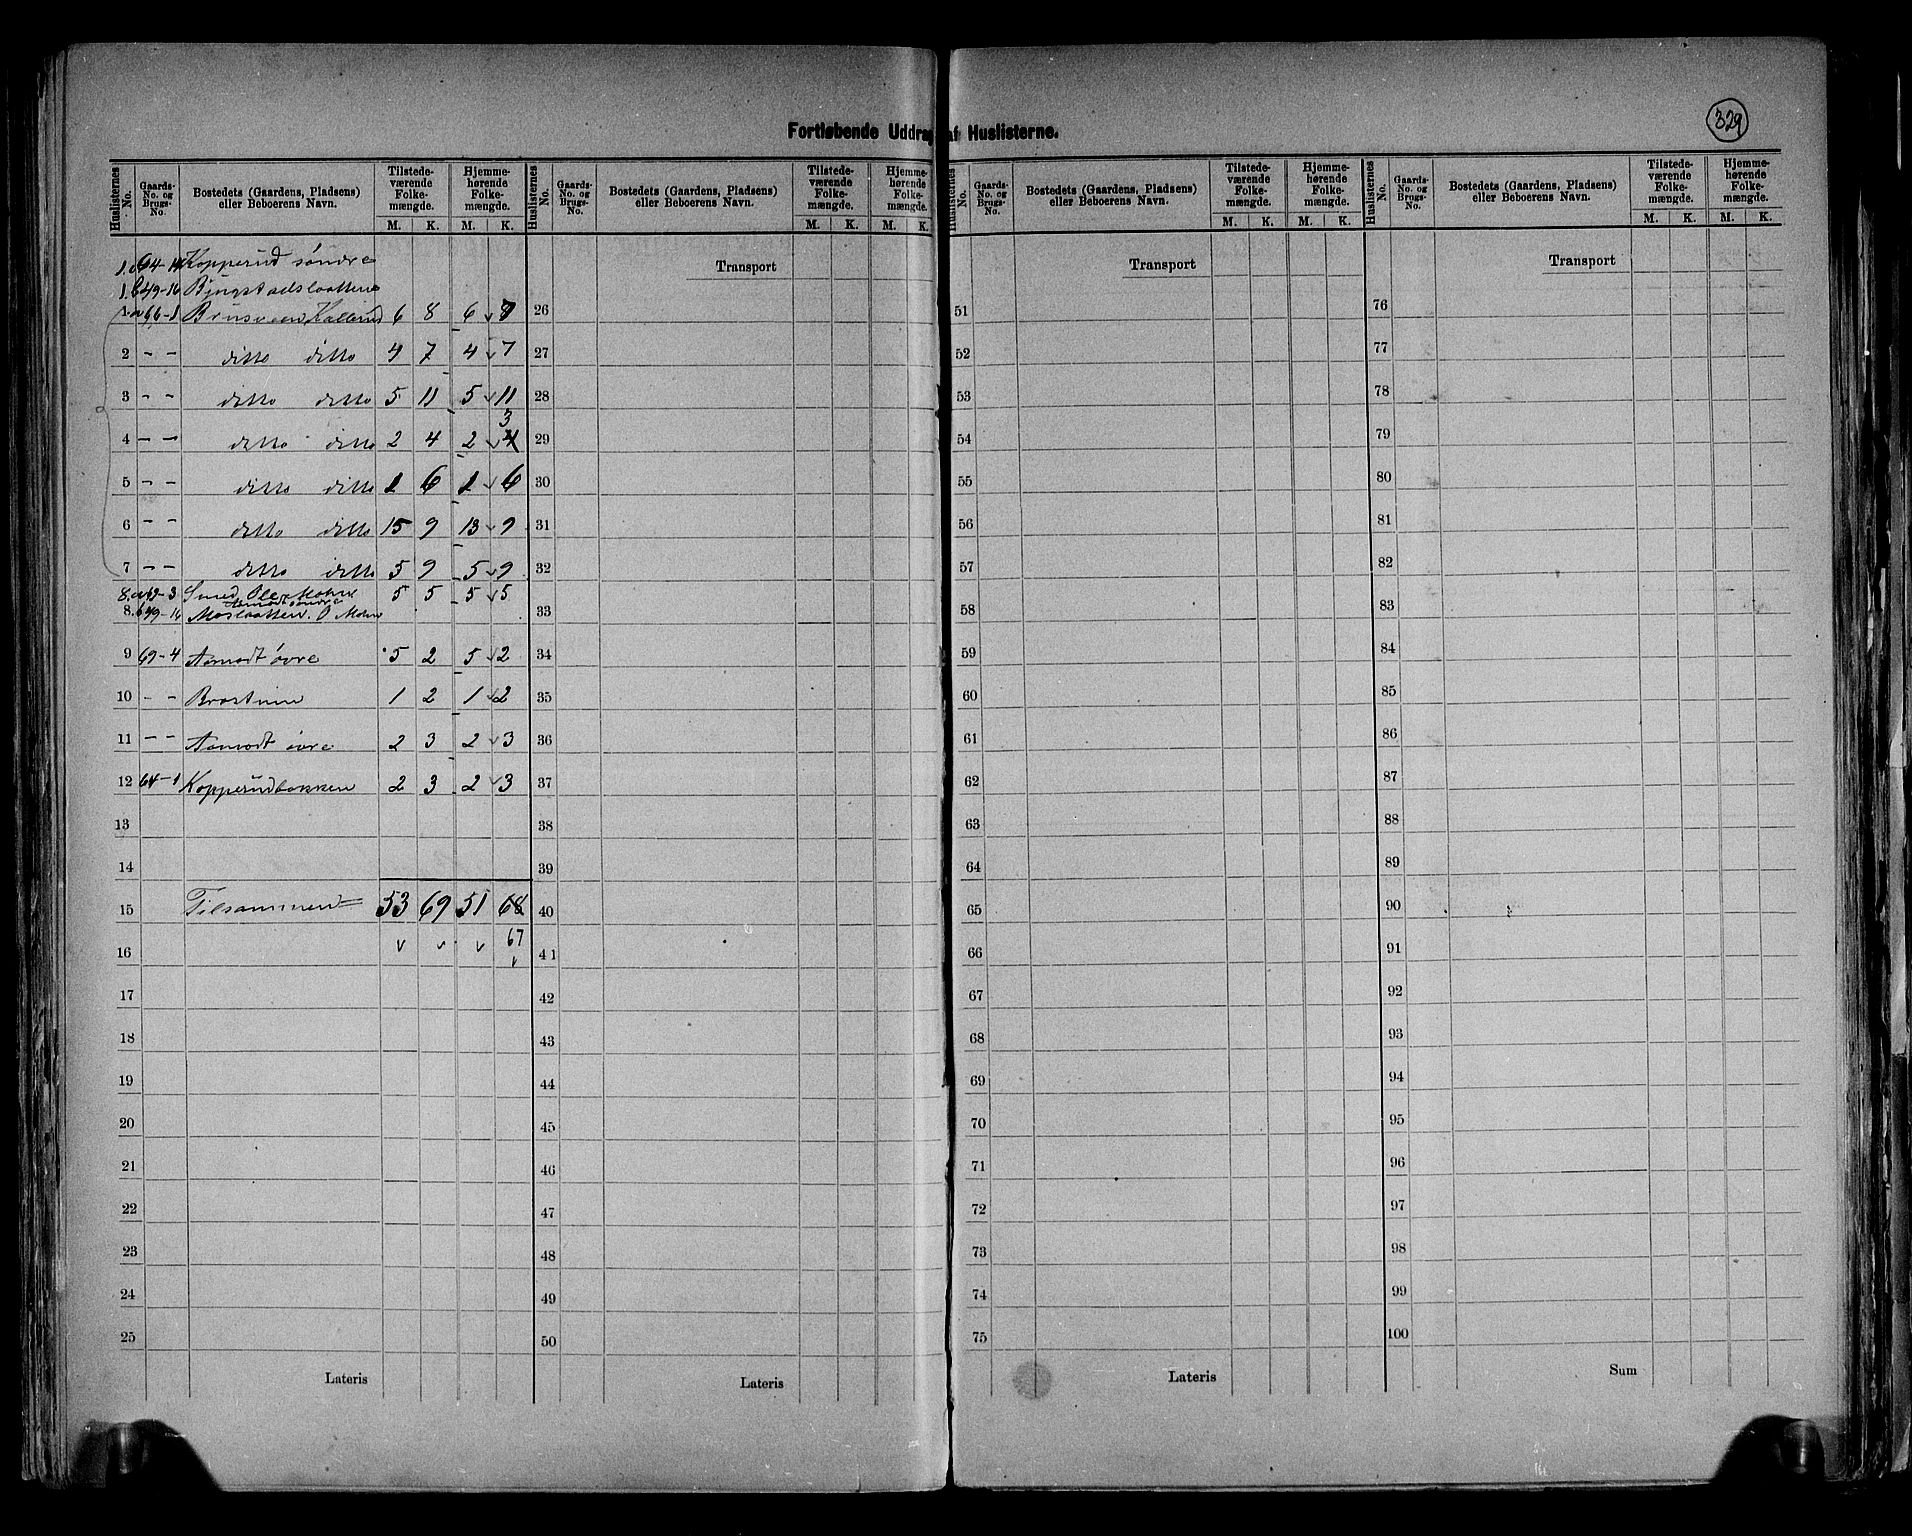 329
Fortløbende Uddrag af Huslisterne.
Huslisternes No. Gaards-No. og Brugs-No. Bostedets (Gaardens, Pladsens) eller Beboerens Navn. Tilstedeværende Folkemængde. M. K. Hjemmehørende Folkemængde. M. K.
Huslisternes No. Gaards-No. og Brugs-No. Bostedets (Gaardens, Pladsens) eller Beboerens Navn. Tilstedeværende Folkemængde. M. K. Hjemmehørende Folkemængde. M. K.
No. Gaards-No. og Brugs-No. Bostedets (Gaardens, Pladsens) eller Beboerens Navn. Tilstedeværende Folkemængde. M. K. Hjemmehørende Folkemængde. M. K.
Huslisternes No. Gaards-No. og Brugs-No. Bostedets (Gaardens, Pladsens) eller Beboerens Navn. Tilstedeværende Folkemængde. M. K. Hjemmehørende Folkemængde. M. K.
Kopperud søndre
1.b 49-16 Bjugstadslaatten
66-1 Kallerud 6 8 6
2 - - ditto ditto 4 7 4 7
3 - - ditto ditto 5 11 5 11
4 - - ditto ditto 2 4 2 4 3
5 - - ditto ditto 1 6 1 6
6 - - ditto ditto 15 9 13 9
7 - - ditto ditto 5 9 5 9
8.a 69-3 Smed, Ole Mohn 5 5 5 5
Aamodt søndre
8.b 49-16 Moslaatten. O Mohn
9 69-4 Aamodt øvre 5 2 5 2
10 - - 1 2 1 2
11 - - Aamodt øvre 2 3 2 3
12 64-1 Kopperudbakken 2 3 2 3
13
14
15 Tilsammen 53 69 51 68
16 67
17
18
19
20
21
22
23
24
25
Lateris
Transport
26
27
28
29
30
31
32
33
34
35
36
37
38
39
40
41
42
43
44
45
46
47
48
49
50
Lateris
Transport
51
52
53
54
55
56
57
58
59
60
61
62
63
64
65
66
67
68
69
70
71
72
73
74
75
Lateris
Transport
76
77
78
79
80
81
82
83
84
85
86
87
88
89
90
91
92
93
94
95
96
97
98
99
100
Sum